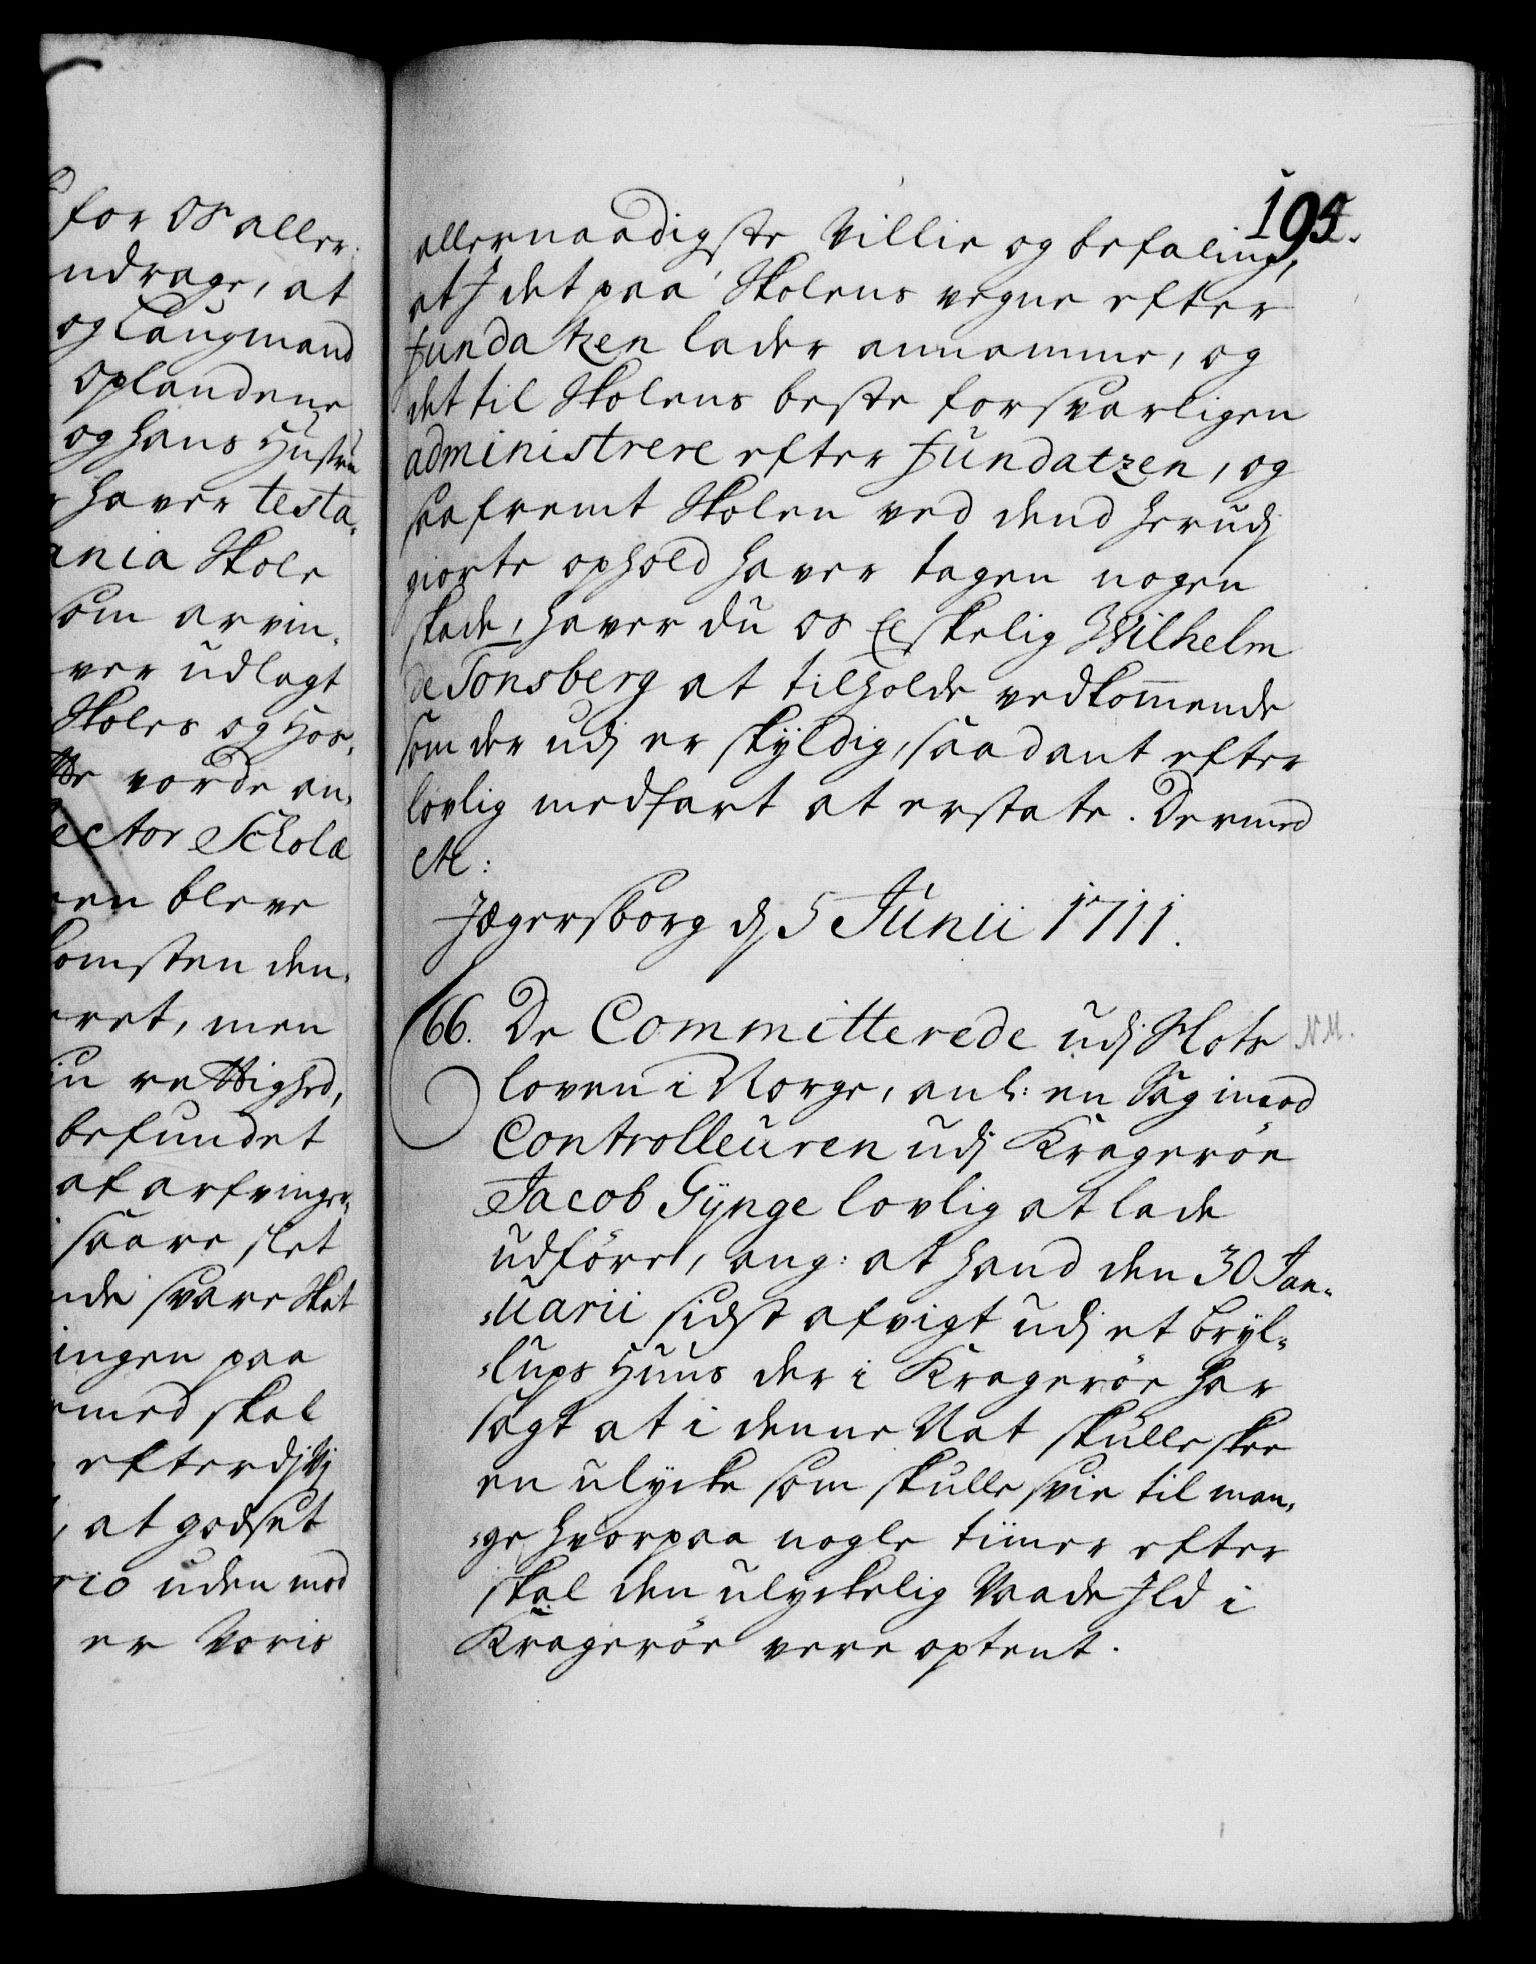 for os aller
ndrage, at
og Laugmand
Oplandene
og hans Hustru
haver testa-
ania Skole
som arvin-
ver udlagt
Skoles og Hos-
vorde an-
Rector Scholæ
en bleve
komsten den-
eret, men
in rettighed,
befundet
af arfvinger-
saare slet
nde svare Skat
ingen paa
med skal
efterdj Vj
, at godset
rio uden med
er Voris
195.
allernaadigste Villie og befaling,
at I det paa Skolens vegne efter
fundatzen lader annamme, og
det til Skolens beste forsvarligen
administrere efter fundatzen, og
saafremt Skolen ved dend herudj
giorte ophold haver tagen nogen
skade, haver du os Elskelig Wilhelm
de Tonsberg at tilholde vedkommende
som der udj er skÿldig, saadant efter
lovlig medfart at erstate. Dermed
etc:
Jægersborg d. 5 Junii 1711.
66. De Committerede udj Slots N.M.
loven i Norge, anl: en Sag imod
Controlleuren udj Kragerøe
Jacob Gÿnge lovlig at lade
udføre, ang: at hand den 30 Jan-
-uarii sidst afvigt udj et brÿl-
-lups Huus der i Kragerøe har
sagt at i denne Nat skulle skee
en ulycke som skulle svie til man-
-ge, hvorpaa nogle tiimer efter
skal den ulyckelig Vaade Ild i
Kragerøe vere optent.